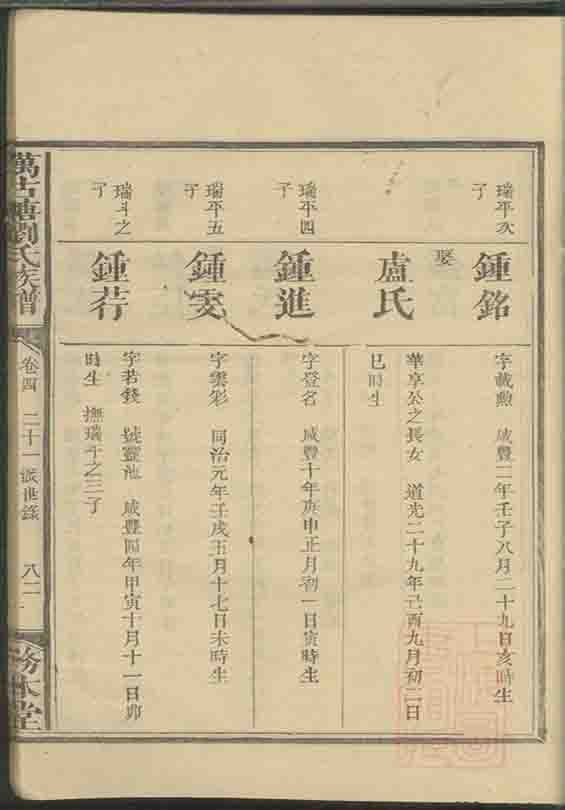 瑞平次
子
鍾銘
字載勲 咸豐二年壬子八月二十九日亥時生
娶
盧氏
華享公之長女 道光二十九年己酉九月初二日
巳時生
瑞平四
子
鍾進
字登名 咸豐十年庚申正月初一日寅時生
瑞平五
子
鍾雯
字雲彩 同治元年壬戌五月十七日未時生
瑞斗之
子
鍾荇
字若錢 號靈池 咸豐四年甲寅十月十一日卯
時生 撫瑞千之三子
萬古塘劉氏族譜
卷四 二十一派世錄
八二
務本堂